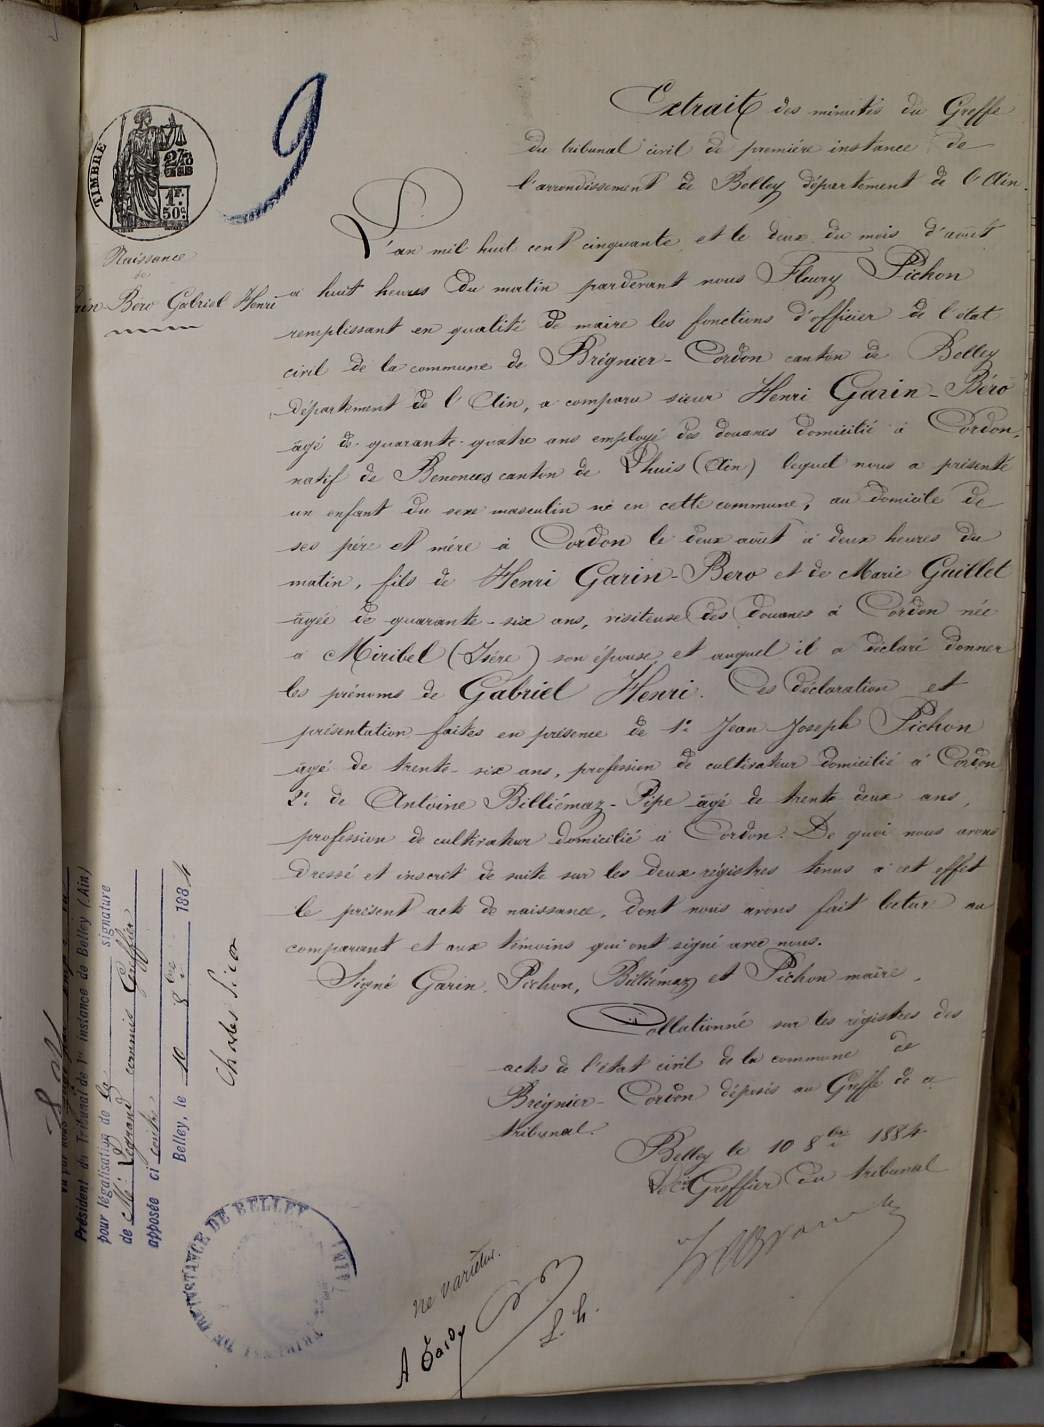 9
TIMBRE
2/10
EN SUS
1F.
50c.
Naissance
de
Garin-Bero Gabriel Henri
Extrait des minutes du Greffe
du tribunal civil de première instance de
l'arrondissement de Belley département de l'Ain.
L'an mil huit cent cinquante et le deux du mois d'août
a huit heures du matin pardevant nous Fleury Pichon
remplissant en qualité de maire les fonctions d'officier de l'etat
civil de la commune de Brégnier-Cordon canton de Belley
département de l'Ain, a comparu sieur Henri Garin-Béro
âgé de quarante-quatre ans employé des douanes domicilié à Cordon,
natif de Benonces canton de Lhuis (Ain) lequel nous a présenté
un enfant du sexe masculin né en cette commune, au domicile de
ses père et mère à Cordon le deux août à deux heures du
matin, fils de Henri Garin-Bero et de Marie Guillet
âgée de quarante-six ans, visiteuse des douanes à Cordon née
a Miribel (Isère) son épouse et auquel il a déclaré donner
les prénoms de Gabriel Henri. Ces déclaration et
présentation faites en présence de 1° Jean Joseph Pichon
âgé de trente-six ans, profession de cultivateur domicilié à Cordon
2° de Antoine Billiémaz-Pipe âgé de trente deux ans,
profession de cultivateur domicilié à Cordon. De quoi nous avons
dressé et inscrit de suite sur les deux régistres tenus a cet effet
le présent acte de naissance, dont nous avons fait lectur au
comparant et aux témoins qui ont signé avec nous.
Signé Garin, Pichon, Billiémaz et Pichon maire.
Collationné sur les régistres des
actes de l'état civil de la commune de
Brégnier-Cordon déposés au Greffe de ce
tribunal.
Belley le 10 8bre 1884
Le cis Greffier du tribunal
Legrand
Président du Tribunal de 1re instance de Belley (Ain)
pour légalisation de la signature
de Mr Legrand commis Greffier
apposée ci contre
Belley, le 10 8bre 1884
TRIBUNAL DE 1re INSTANCE DE BELLEY (AIN)
ne varietur.
A Tardy